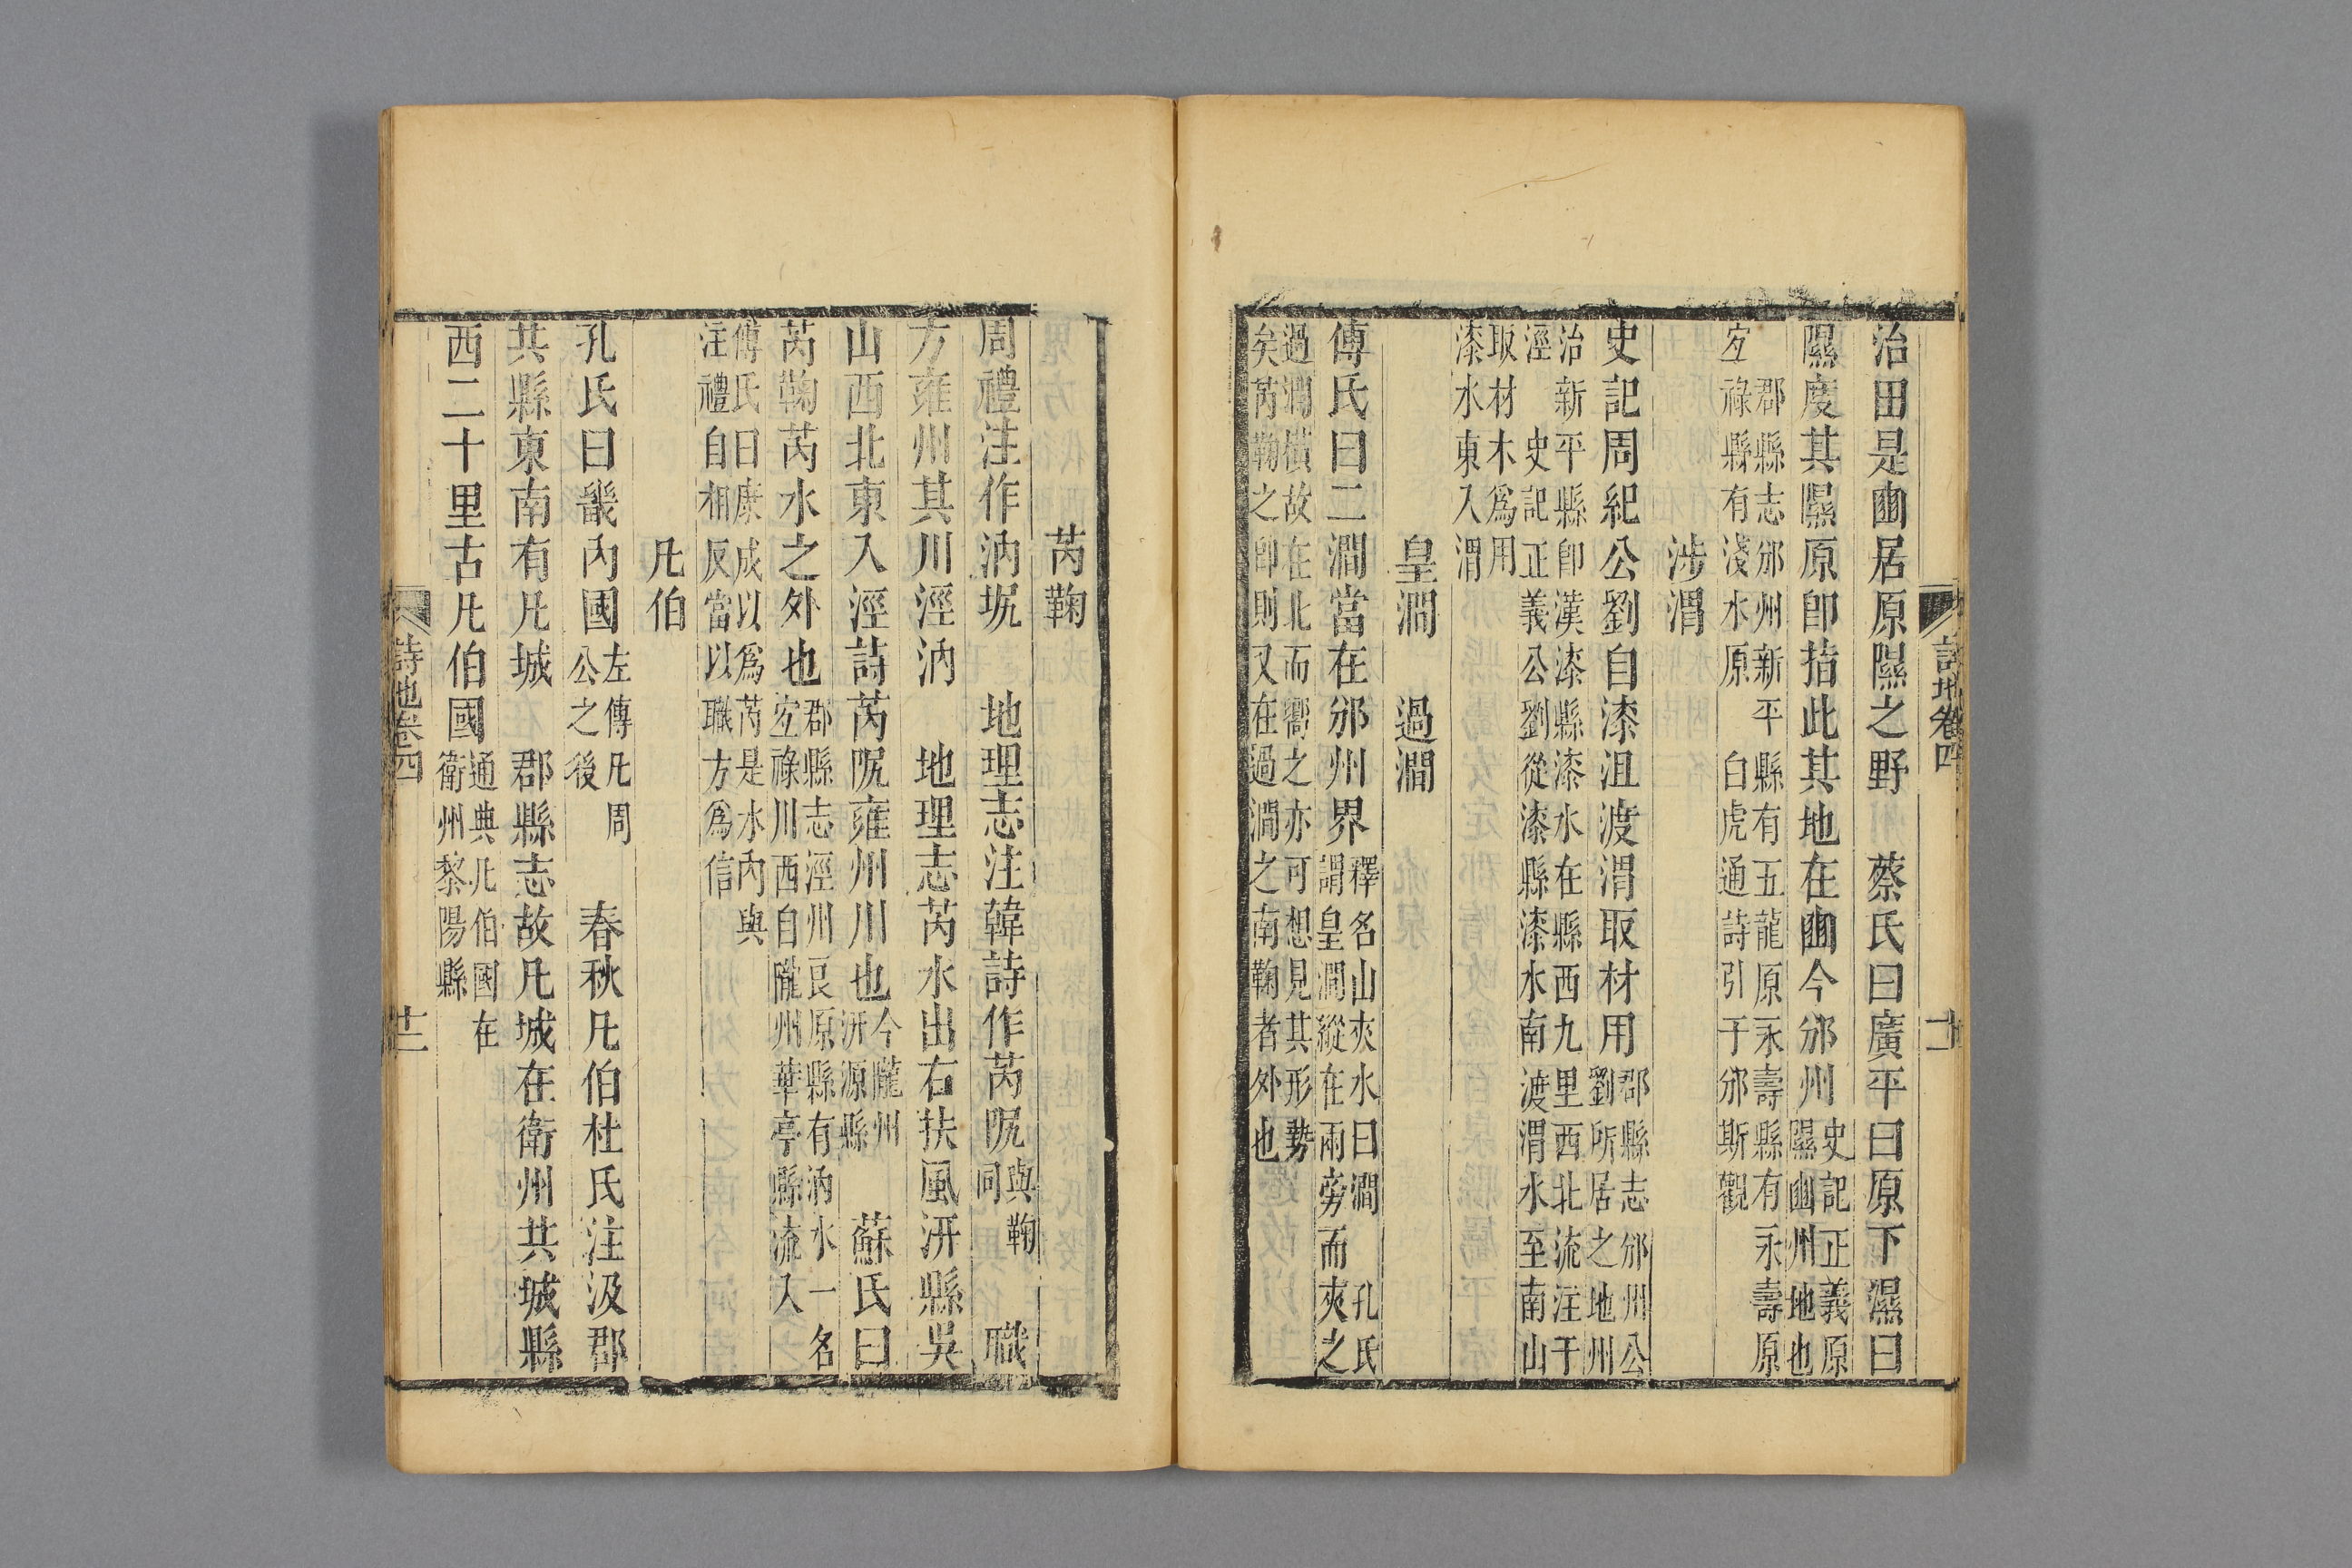 治田是豳居原隰之野　蔡氏曰廣平曰原下濕曰
隰度其隰原卽指此其地在豳今邠州史記正義原隰豳州地也
郡縣志邠州新平縣有五龍原永壽縣有永壽原
宐祿縣有淺水原　白虎通詩引于邠斯觀
涉渭
史記周紀公劉自漆沮渡渭取材用郡縣志邠州公劉所居之地州
治新平縣卽漢漆縣漆水在縣西九里西北流注于
涇　史記正義公劉從漆縣漆水南渡渭水至南山
取材木爲用
漆水東入渭
皇澗　過澗
傅氏曰二澗當在邠州界釋名山夾水曰澗　孔氏謂皇澗縱在兩旁而夾之
過澗橫故在北而嚮之亦可想見其形勢
矣芮鞫之卽則又在過澗之南鞫者外也
詩地卷四
芮鞫
周禮注作汭坭　地理志注韓詩作芮阮與鞫同　職
方雍州其川涇汭　地理志芮水出右扶風汧縣吳
山西北東入涇詩芮阮雍州川也今隴州汧源縣　蘇氏曰
芮鞫芮水之外也郡縣志涇州良原縣有汭水一名宐祿川西自隴州華亭縣流入
傅氏曰康成以爲芮是水內與
注禮自相反當以職方爲信
凡伯
孔氏曰畿內國左傳凡周公之後　春秋凡伯杜氏注汲郡
共縣東南有凡城　郡縣志故凡城在衛州共城縣
西二十里古凡伯國通典凡伯國在衛州黎陽縣
詩地卷四
十二